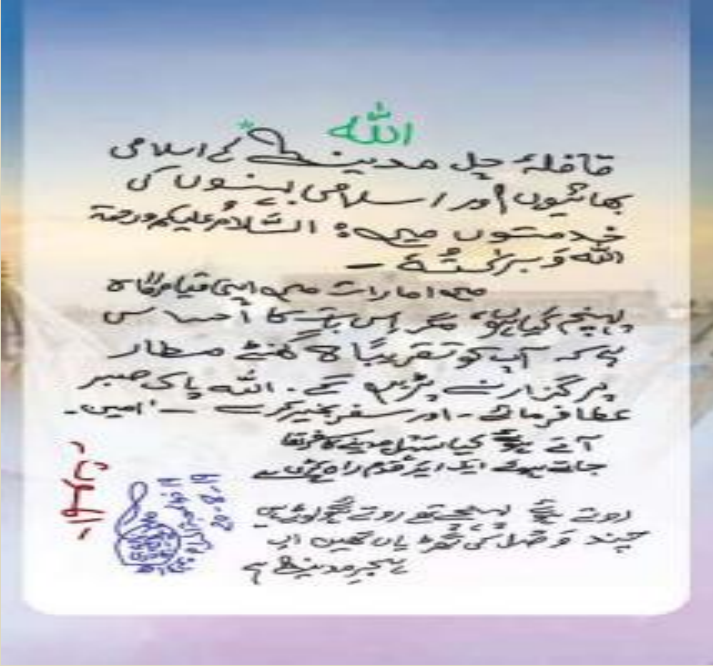 اللہ
قافلۂ چل مدینہ کے اسلامی
بھائیوں اور اسلامی بہنوں کی
خدمتوں میں: السَّلامُ علیکم ورحمۃ
اللہ وَ برَکاتُہٗ -
میں امارات میں اپنی قیام گاہ
پہنچ گیا ہوں، مگر اِس بات کا اَحساس
ہے کہ آپ کو تقریباً 8 گھنٹے مطار
پر گزارنے پڑیں گے۔ اللہ پاک صبر
عطا فرمائے - اور سفر بخیر کرے - اٰمین -
آتے ہوئے کیا مدینے کا تھا
جاتے ہوئے ایک ایک قدم
روتے ہوئے پہنچے تھے روتے ہوئے لوٹے ہیں
چند وصل کی گھڑیاں تھیں اب
ہجرِ مدینہ ہے
20-8-19